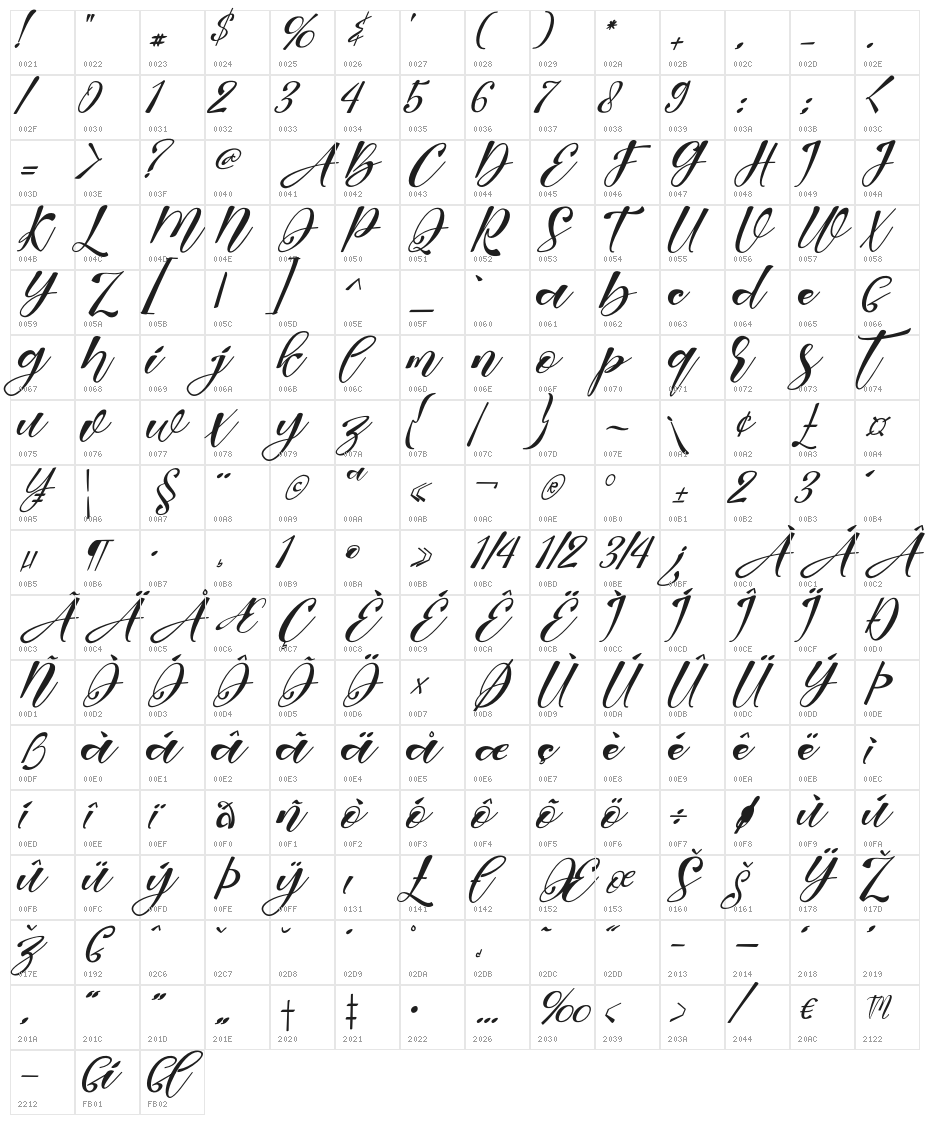 ! " # $ % & ' ( ) * + , - .
0021 0022 0023 0024 0025 0026 0027 0028 0029 002A 002B 002C 002D 002E
/ 0 1 2 3 4 5 6 7 8 9 : ; <
002F 0030 0031 0032 0033 0034 0035 0036 0037 0038 0039 003A 003B 003C
= > ? @ A B C D E F G H I J
003D 003E 003F 0040 0041 0042 0043 0044 0045 0046 0047 0048 0049 004A
K L M N O P Q R S T U V W X
004B 004C 004D 004E 004F 0050 0051 0052 0053 0054 0055 0056 0057 0058
Y Z [ \ ] ^ _ ` a b c d e f
0059 005A 005B 005C 005D 005E 005F 0060 0061 0062 0063 0064 0065 0066
g h i j k l m n o p q r s t
0067 0068 0069 006A 006B 006C 006D 006E 006F 0070 0071 0072 0073 0074
u v w x y z { | } ~ ¡ ¢ £ ¤
0075 0076 0077 0078 0079 007A 007B 007C 007D 007E 00A1 00A2 00A3 00A4
¥ ¦ § ¨ © ª « ¬ ® ° ± ² ³ ´
00A5 00A6 00A7 00A8 00A9 00AA 00AB 00AC 00AE 00B0 00B1 00B2 00B3 00B4
µ ¶ · ¸ ¹ º » ¼ ½ ¾ ¿ À Á Â
00B5 00B6 00B7 00B8 00B9 00BA 00BB 00BC 00BD 00BE 00BF 00C0 00C1 00C2
Ã Ä Å Æ Ç È É Ê Ë Ì Í Î Ï Ð
00C3 00C4 00C5 00C6 00C7 00C8 00C9 00CA 00CB 00CC 00CD 00CE 00CF 00D0
Ñ Ò Ó Ô Õ Ö × Ø Ù Ú Û Ü Ý Þ
00D1 00D2 00D3 00D4 00D5 00D6 00D7 00D8 00D9 00DA 00DB 00DC 00DD 00DE
ß à á â ã ä å æ ç è é ê ë ì
00DF 00E0 00E1 00E2 00E3 00E4 00E5 00E6 00E7 00E8 00E9 00EA 00EB 00EC
í î ï ð ñ ò ó ô õ ö ÷ ø ù ú
00ED 00EE 00EF 00F0 00F1 00F2 00F3 00F4 00F5 00F6 00F7 00F8 00F9 00FA
û ü ý þ ÿ ı Ł ł Œ œ Š š Ÿ Ž
00FB 00FC 00FD 00FE 00FF 0131 0141 0142 0152 0153 0160 0161 0178 017D
ž ƒ ˆ ˇ ˘ ˙ ˚ ˛ ˜ ˝ – — ‘ ’
017E 0192 02C6 02C7 02D8 02D9 02DA 02DB 02DC 02DD 2013 2014 2018 2019
‚ “ ” „ † ‡ • … ‰ ‹ › ⁄ € ™
201A 201C 201D 201E 2020 2021 2022 2026 2030 2039 203A 2044 20AC 2122
− ﬁ ﬂ
2212 FB01 FB02